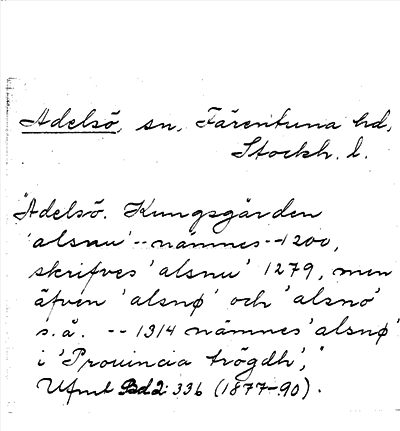 Adelsö, sn, Färentuna hd,
Stockh. l.
"Adelsö. Kungsgården
'alsnu' -- nämnes -- 1200,
skrifves 'alsnu' 1279, men
äfven 'alsnø' och 'alsno'
s.å. -- 1314 nämnes 'alsnø'
i 'Prouincia trögdh',"
Ufmt Bd 2: 336 (1877-90).